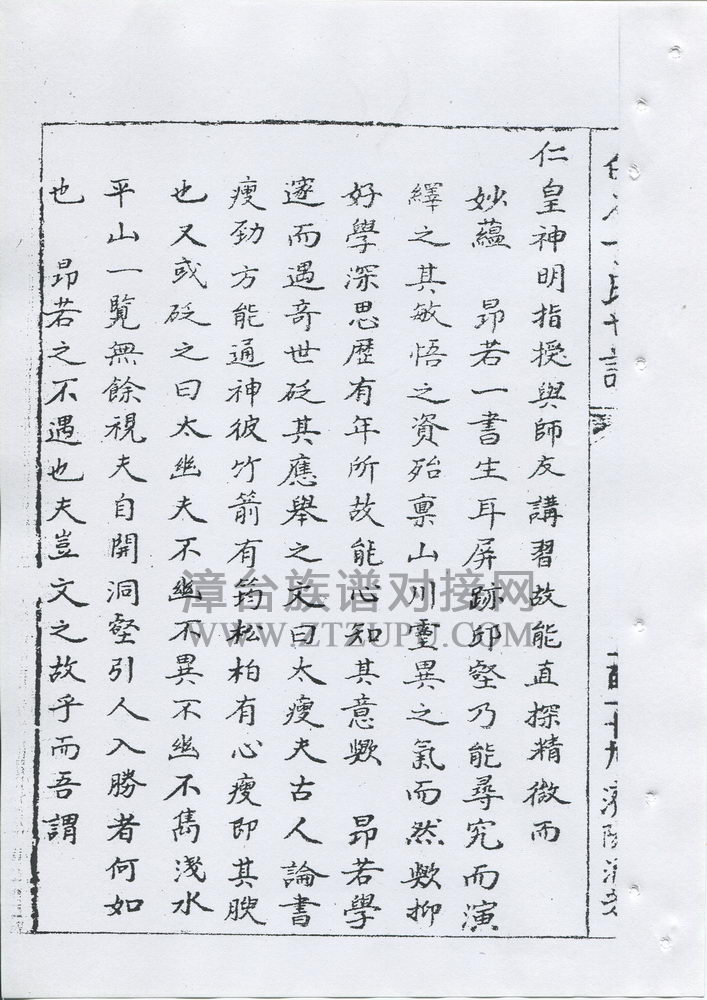 仁皇神明指授與師友講習故能直探精微而
妙蘊　昂若一書生耳屏跡邱壑乃能尋究而演
繹之其敏悟之資殆禀山川靈異之氣而然歟抑
好學深思歷有年所故能心知其意歟　昂若學
邃而遇奇世砭其應舉之文曰太瘦夫古人論書
瘦勁方能通神彼竹箭有筠松柏有心瘦即其腴
也又或砭之曰太幽夫不幽不異不幽不雋淺水
平山一覽無餘視夫自開洞壑引人入勝者何如
也　昂若之不遇也夫豈文之故乎而吾謂
漳台族谱对接网
WWW.ZTZUPU.COM